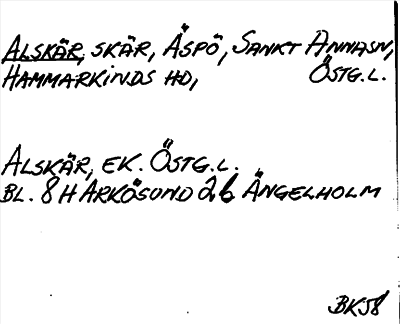 ALSKÄR, SKÄR, ÄSPÖ, SANKT ANNASN,
HAMMARKINDS HD, ÖSTG.L.
ALSKÄR, EK. ÖSTG.L.
BL. 8 H ARKÖSUND 2b ÄNGELHOLM
BK58